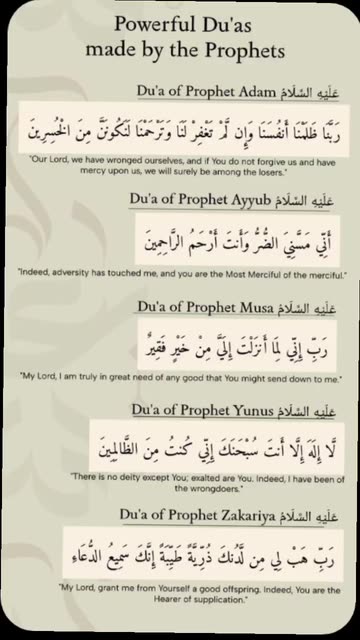 Powerful Du'as
made by the Prophets
Du'a of Prophet Adam عَلَيْهِ السَّلَامُ
رَبَّنَا ظَلَمْنَا أَنْفُسَنَا وَإِن لَّمْ تَغْفِرْ لَنَا وَتَرْحَمْنَا لَنَكُونَنَّ مِنَ الْخَٰسِرِينَ
"Our Lord, we have wronged ourselves, and if You do not forgive us and have
mercy upon us, we will surely be among the losers."
Du'a of Prophet Ayyub عَلَيْهِ السَّلَامُ
أَنِّي مَسَّنِيَ الضُّرُّ وَأَنتَ أَرْحَمُ الرَّاحِمِينَ
"Indeed, adversity has touched me, and you are the Most Merciful of the merciful."
Du'a of Prophet Musa عَلَيْهِ السَّلَامُ
رَبِّ إِنِّي لِمَا أَنزَلْتَ إِلَيَّ مِنْ خَيْرٍ فَقِيرٌ
"My Lord, I am truly in great need of any good that You might send down to me."
Du'a of Prophet Yunus عَلَيْهِ السَّلَامُ
لَّا إِلَهَ إِلَّا أَنتَ سُبْحَنَكَ إِنِّي كُنتُ مِنَ الظَّالِمِينَ
"There is no deity except You; exalted are You. Indeed, I have been of
the wrongdoers."
Du'a of Prophet Zakariya عَلَيْهِ السَّلَامُ
رَبِّ هَبْ لِي مِن لَّدُنكَ ذُرِّيَّةً طَيِّبَةً إِنَّكَ سَمِيعُ الدُّعَاءِ
"My Lord, grant me from Yourself a good offspring. Indeed, You are the
Hearer of supplication."